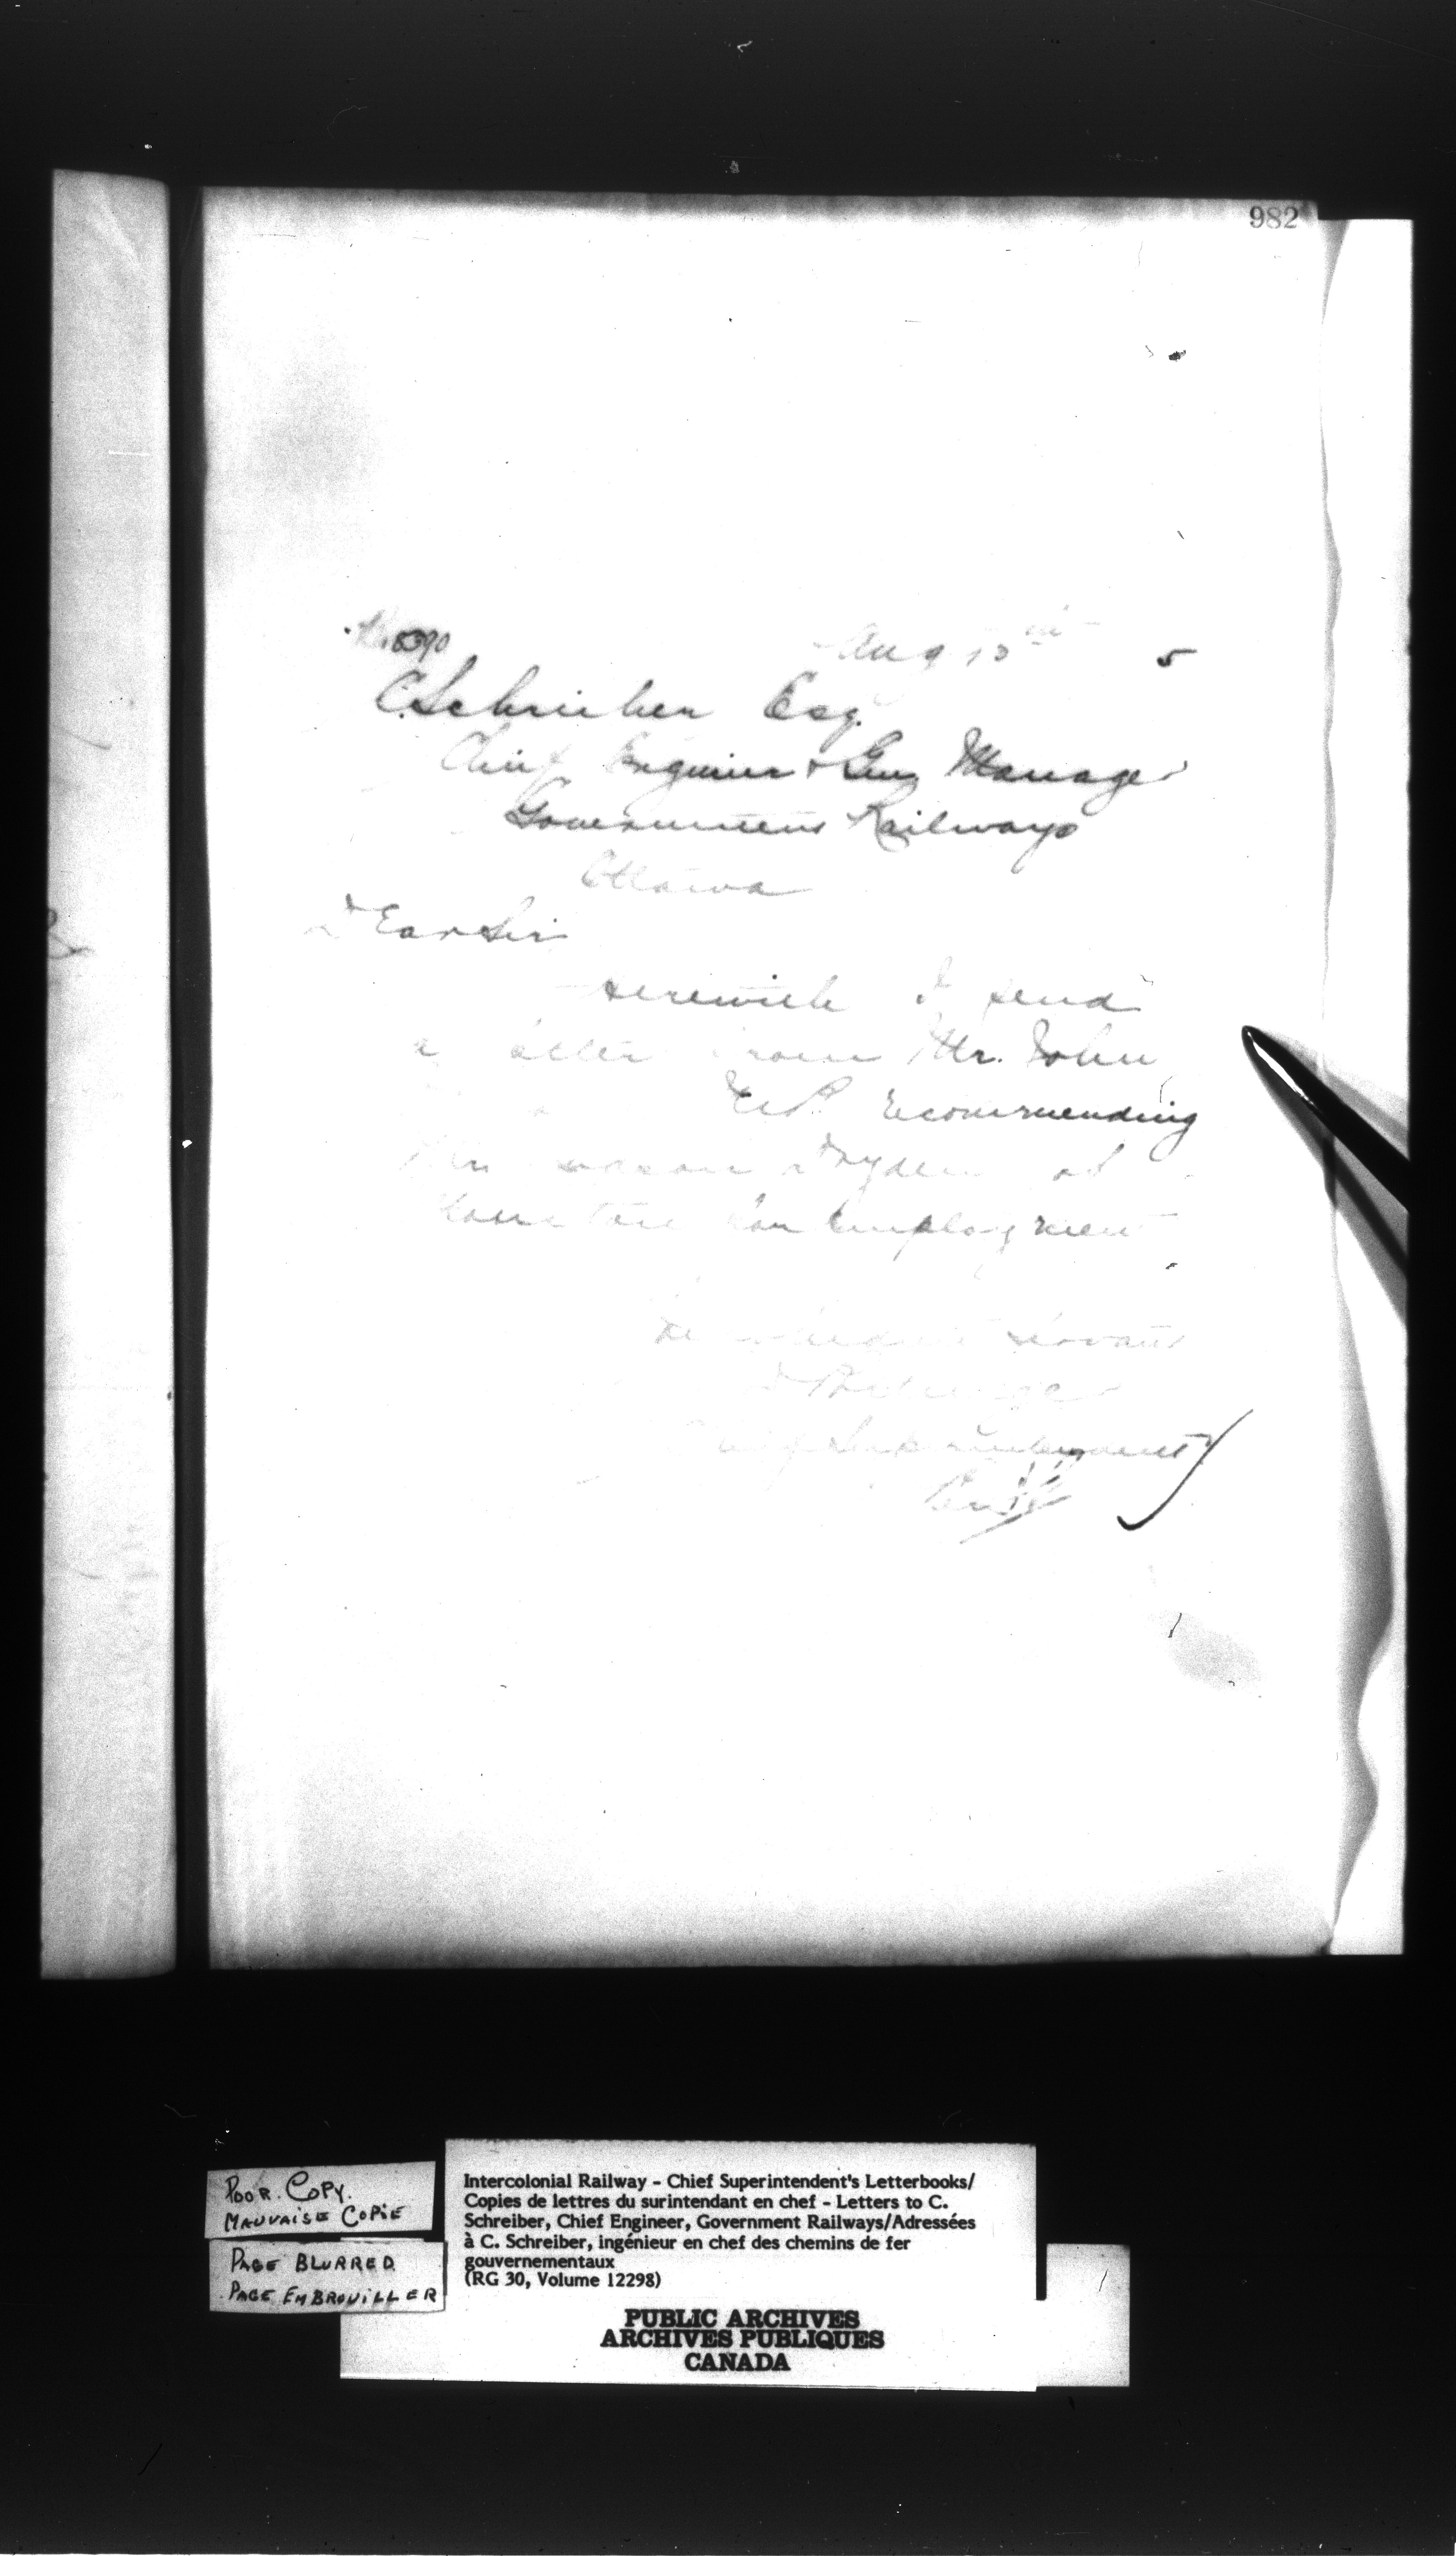 982
No. 5390 Aug 13th 5
C. Schreiber Esq.
Chief Engineer & Gen Manager
Government Railways
Ottawa
Dear Sir
Herewith I send
a letter from Mr. John
M.P. recommending
Mr Dryden of
for employment
obedient servant
D Pottinger
Chief Superintendent
POOR. COPY.
MAUVAISE COPIE
PAGE BLURRED.
PAGE EMBROUILLER
Intercolonial Railway - Chief Superintendent's Letterbooks/
Copies de lettres du surintendant en chef - Letters to C.
Schreiber, Chief Engineer, Government Railways/Adressées
à C. Schreiber, ingénieur en chef des chemins de fer
gouvernementaux
(RG 30, Volume 12298)
PUBLIC ARCHIVES
ARCHIVES PUBLIQUES
CANADA